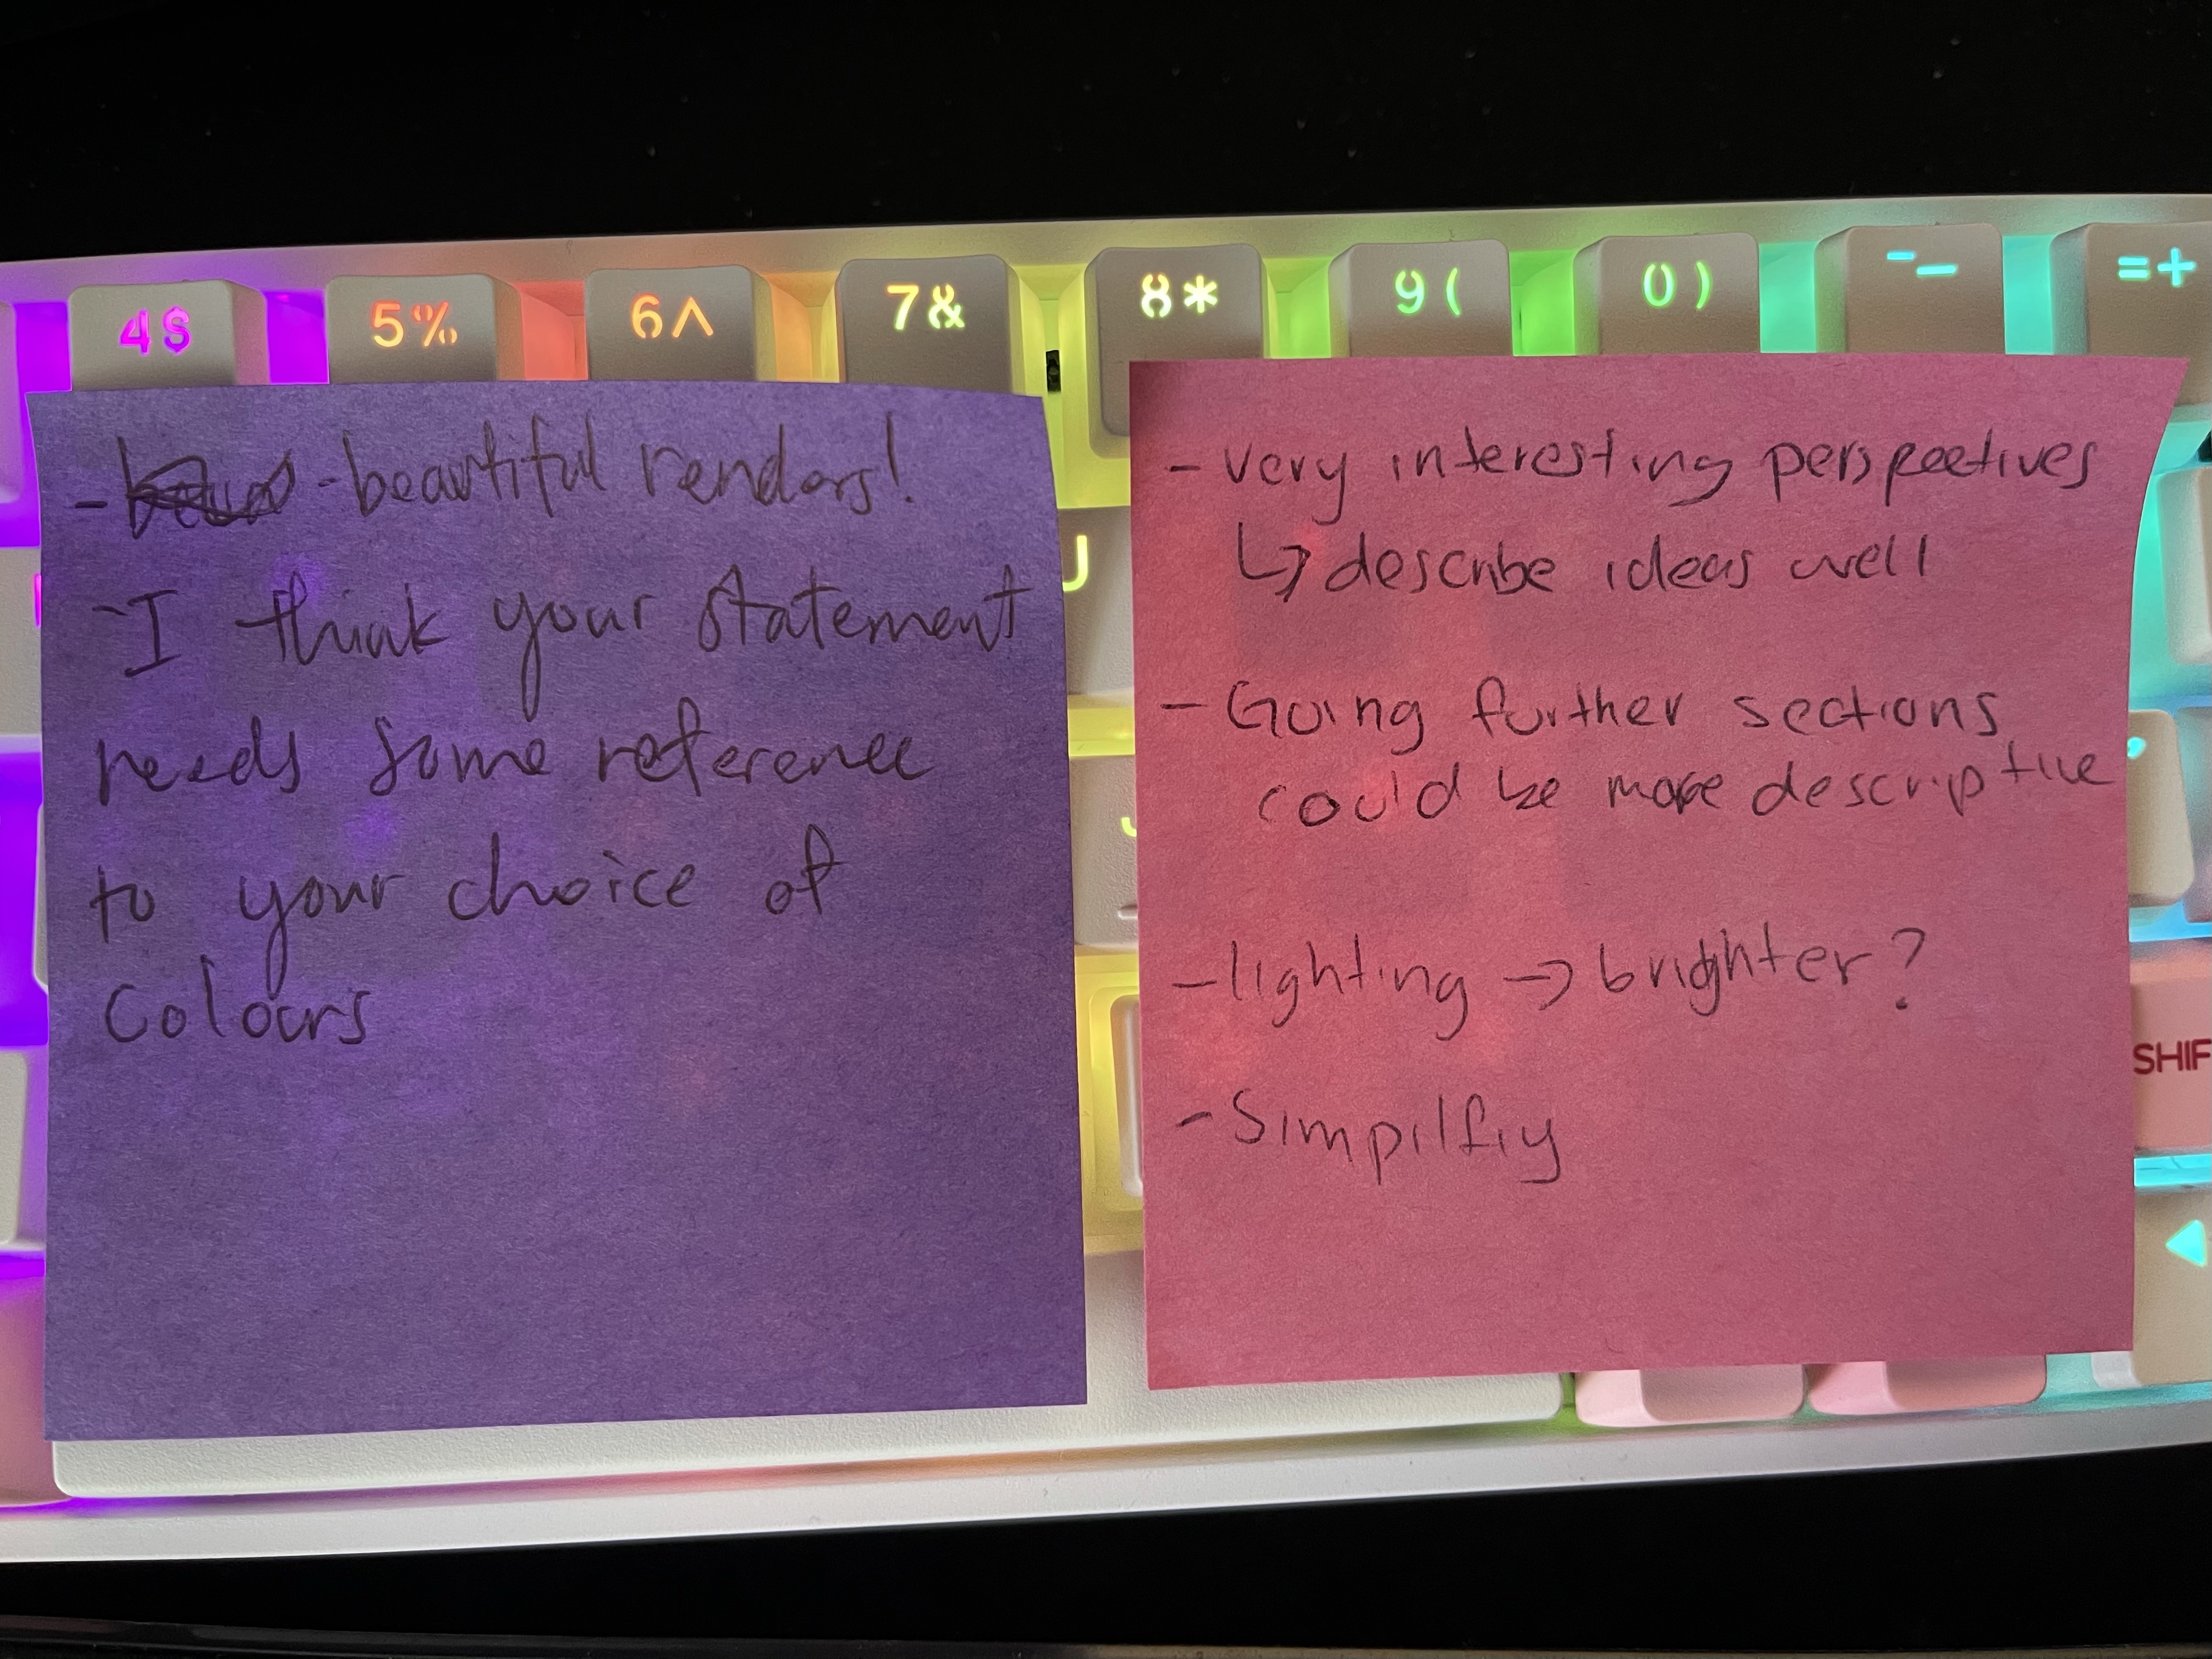 4$ 5% 6^ 7& 8* 9( 0) -_ =+
U
- -beautiful renders!
-I think your statement
needs some reference
to your choice of
Colours
- very interesting perspectives
↳ describe ideas well
- Going further sections
could be more descriptive
- lighting → brighter?
- Simpilfiy
SHIF